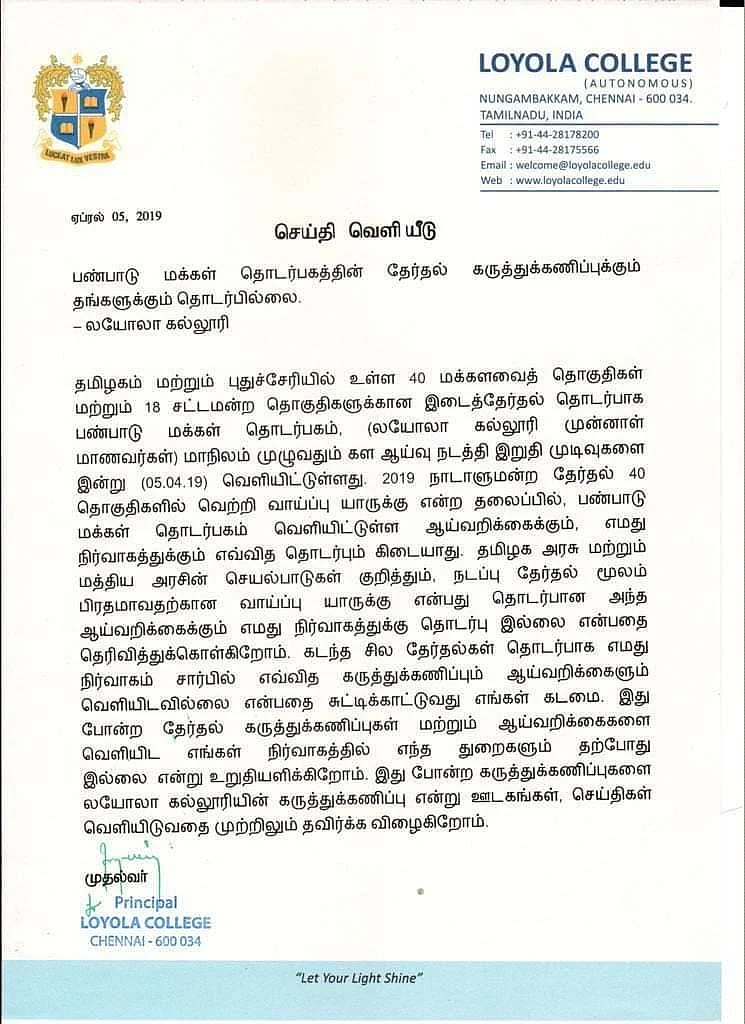 LOYOLA COLLEGE
(AUTONOMOUS)
NUNGAMBAKKAM, CHENNAI - 600 034.
TAMILNADU, INDIA
Tel : +91-44-28178200
Fax : +91-44-28175566
Email : welcome@loyolacollege.edu
Web : www.loyolacollege.edu
LUCEAT LUX VESTRA
ஏப்ரல் 05, 2019
செய்தி வெளியீடு
பண்பாடு மக்கள் தொடர்பகத்தின் தேர்தல் கருத்துக்கணிப்புக்கும்
தங்களுக்கும் தொடர்பில்லை.
– லயோலா கல்லூரி
தமிழகம் மற்றும் புதுச்சேரியில் உள்ள 40 மக்களவைத் தொகுதிகள்
மற்றும் 18 சட்டமன்ற தொகுதிகளுக்கான இடைத்தேர்தல் தொடர்பாக
பண்பாடு மக்கள் தொடர்பகம், (லயோலா கல்லூரி முன்னாள்
மாணவர்கள்) மாநிலம் முழுவதும் கள ஆய்வு நடத்தி இறுதி முடிவுகளை
இன்று (05.04.19) வெளியிட்டுள்ளது. 2019 நாடாளுமன்ற தேர்தல் 40
தொகுதிகளில் வெற்றி வாய்ப்பு யாருக்கு என்ற தலைப்பில், பண்பாடு
மக்கள் தொடர்பகம் வெளியிட்டுள்ள ஆய்வறிக்கைக்கும், எமது
நிர்வாகத்துக்கும் எவ்வித தொடர்பும் கிடையாது. தமிழக அரசு மற்றும்
மத்திய அரசின் செயல்பாடுகள் குறித்தும், நடப்பு தேர்தல் மூலம்
பிரதமாவதற்கான வாய்ப்பு யாருக்கு என்பது தொடர்பான அந்த
ஆய்வறிக்கைக்கும் எமது நிர்வாகத்துக்கு தொடர்பு இல்லை என்பதை
தெரிவித்துக்கொள்கிறோம். கடந்த சில தேர்தல்கள் தொடர்பாக எமது
நிர்வாகம் சார்பில் எவ்வித கருத்துக்கணிப்பும் ஆய்வறிக்கைளும்
வெளியிடவில்லை என்பதை சுட்டிக்காட்டுவது எங்கள் கடமை. இது
போன்ற தேர்தல் கருத்துக்கணிப்புகள் மற்றும் ஆய்வறிக்கைகளை
வெளியிட எங்கள் நிர்வாகத்தில் எந்த துறைகளும் தற்போது
இல்லை என்று உறுதியளிக்கிறோம். இது போன்ற கருத்துக்கணிப்புகளை
லயோலா கல்லூரியின் கருத்துக்கணிப்பு என்று ஊடகங்கள், செய்திகள்
வெளியிடுவதை முற்றிலும் தவிர்க்க விழைகிறோம்.
முதல்வர்
Principal
LOYOLA COLLEGE
CHENNAI - 600 034
“Let Your Light Shine”